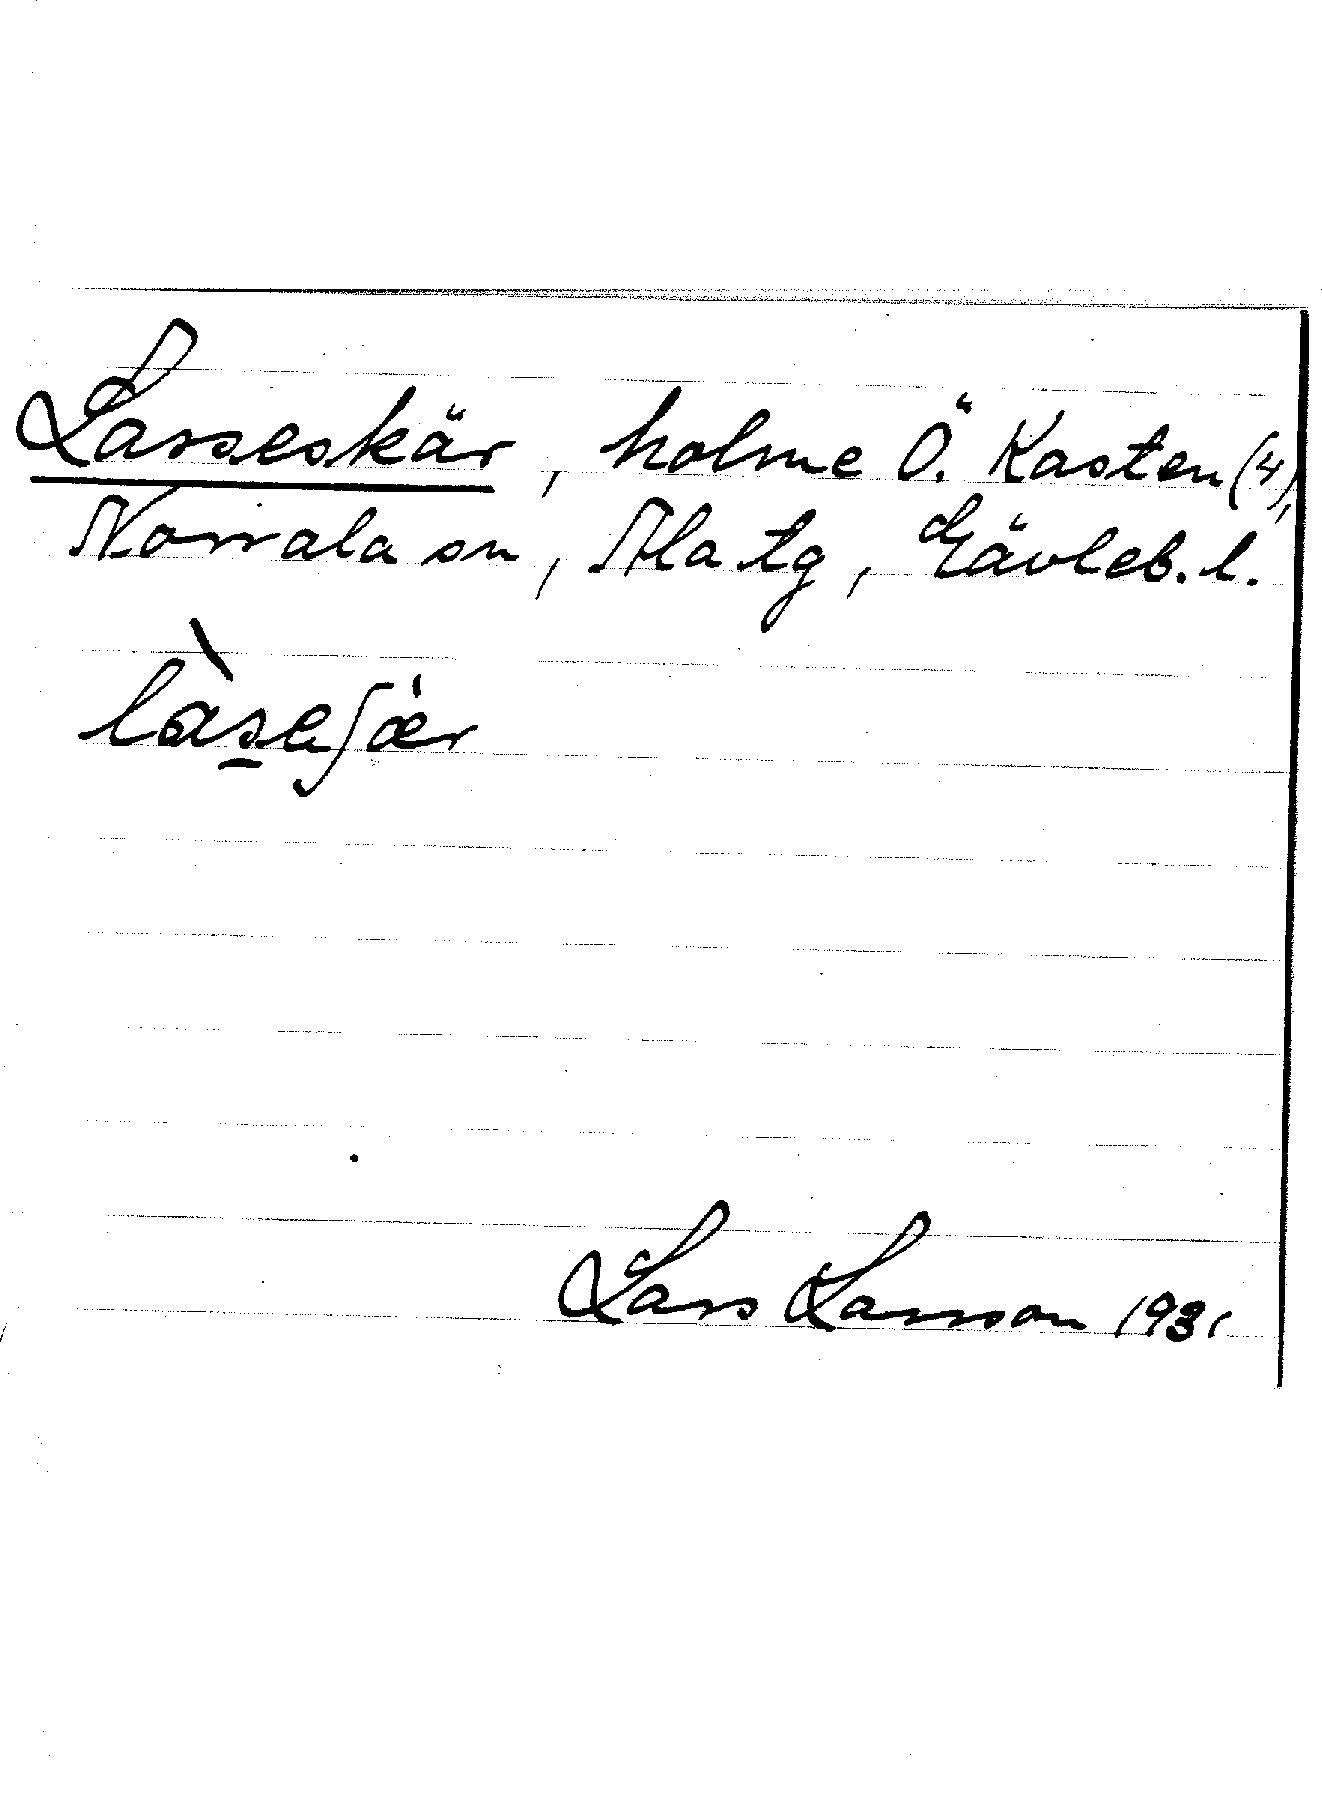 Lasseskär, holme Ö. Kasten (4),
Norrala sn, Ala tg, Gävleb. l.
làseʃæ̀r
Lars Larsson 1931